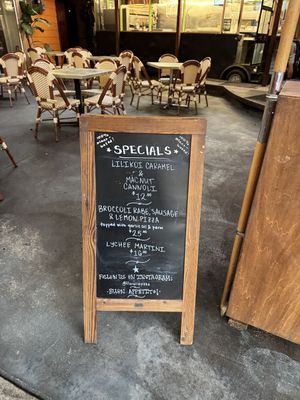 SPECIALS
LILIKOI CARAMEL
&
MACNUT
CANNOLI
$12.00
BROCCOLI RABE, SAUSAGE
& LEMON PIZZA
topped with garlic oil & parm
$25.00
LYCHEE MARTINI
FOLLOW US ON INSTAGRAM:
BUON APPETITO!